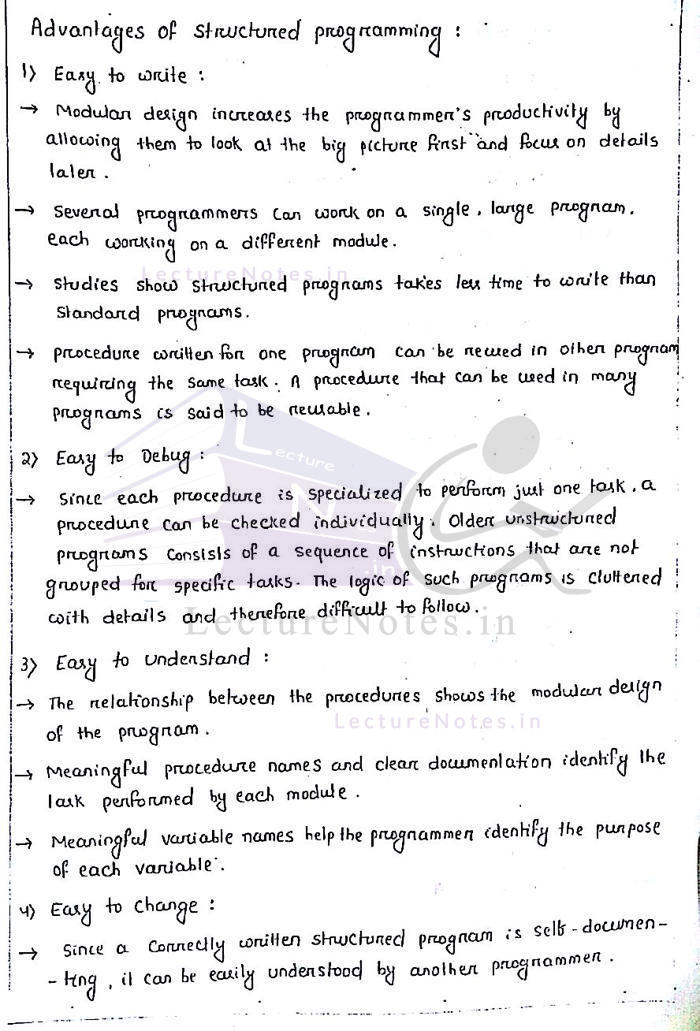 Advantages of structured programming :
1) Easy to write :
→ Modular design increases the programmer's productivity by
allowing them to look at the big picture first and focus on details
later.
→ Several programmers can work on a single, large program,
each working on a different module.
LectureNotes.in
→ Studies show structured programs takes less time to write than
standard programs.
→ procedure written for one program can be reused in other program
requiring the same task. A procedure that can be used in many
programs is said to be reusable.
2) Easy to Debug :
Lecture
N
→ Since each procedure is specialized to perform just one task, a
procedure can be checked individually. Older unstructured
programs consists of a sequence of instructions that are not
.in
grouped for specific tasks. The logic of such programs is cluttered
with details and therefore difficult to follow.
LectureNotes.in
3) Easy to understand :
→ The relationship between the procedures shows the modular design
of the program.
LectureNotes.in
→ Meaningful procedure names and clear documentation identify the
task performed by each module.
→ Meaningful variable names help the programmer identify the purpose
of each variable.
4) Easy to change :
→ Since a correctly written structured program is self-documen-
-ting, it can be easily understood by another programmer.